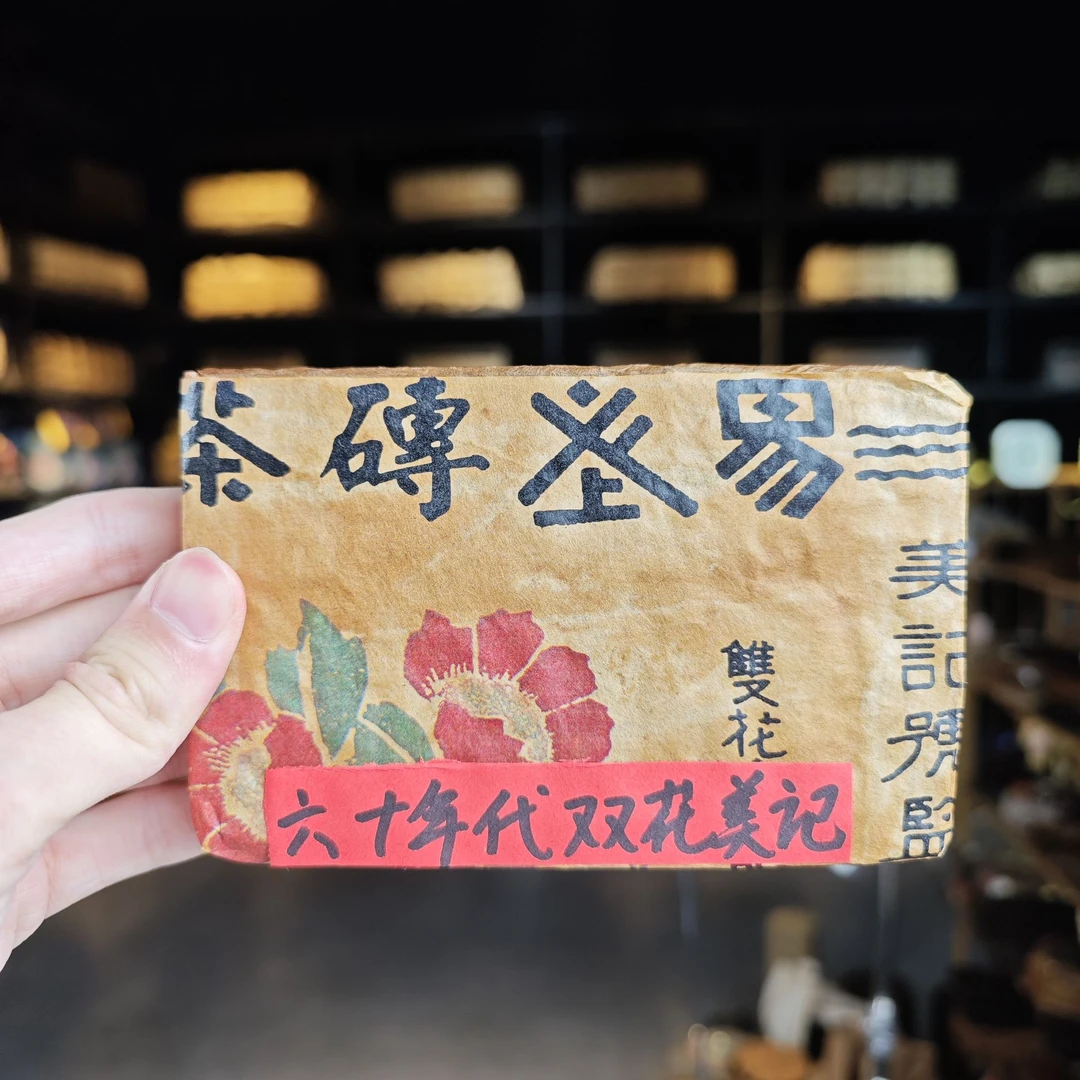 茶磚
美記號監
雙花
六十年代双花美记